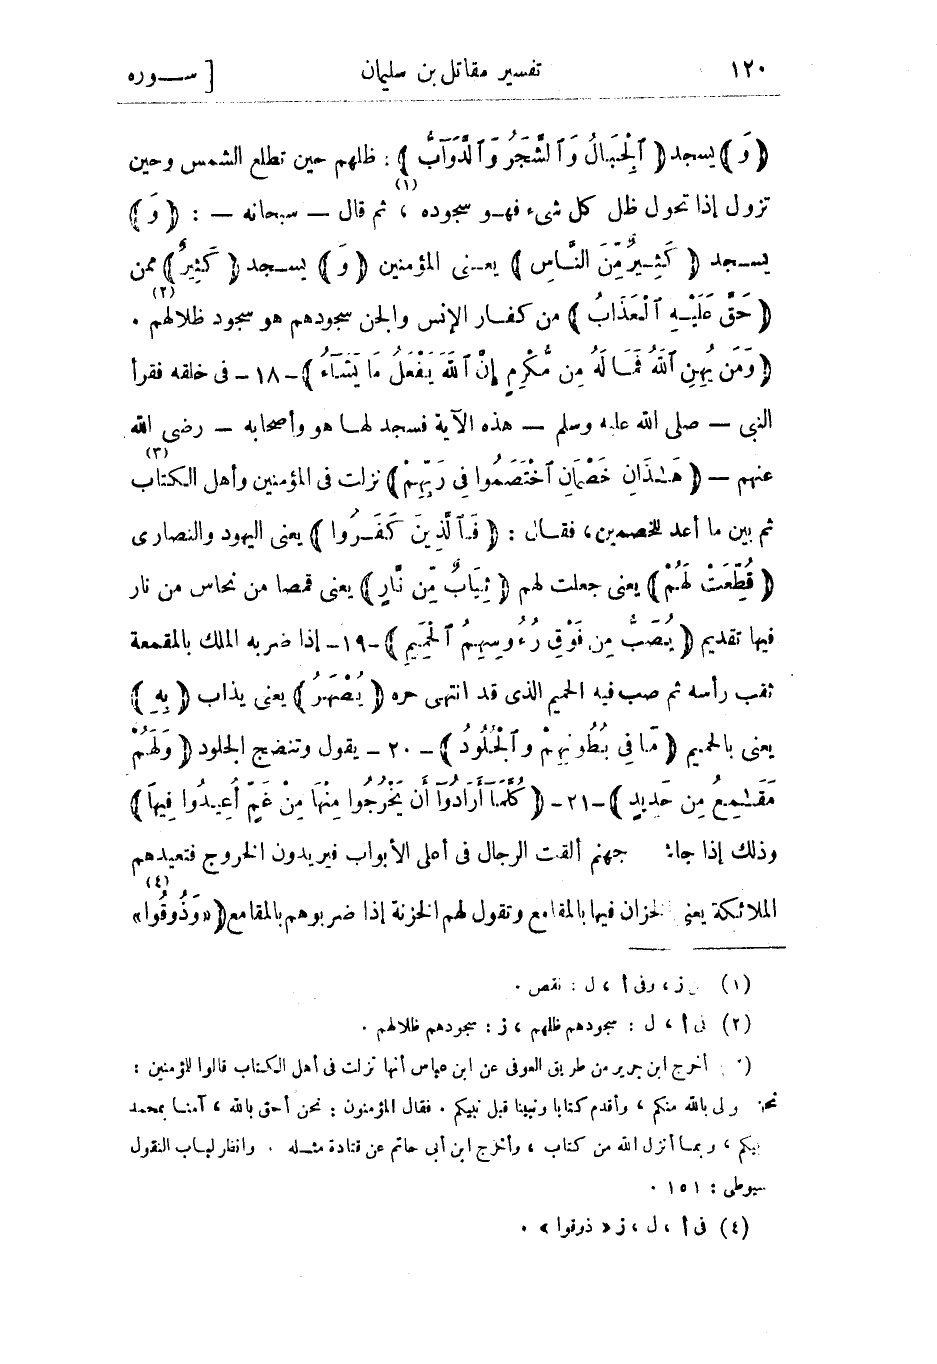 ١٢٠ تفسير مقاتل بن سليمان [ ســـوره
﴿ وَ ﴾ يسجد ﴿ ٱلْجِبَالُ وَٱلشَّجَرُ وَٱلدَّوَآبُّ ﴾ : ظلهم حين تطلع الشمس وحين
تزول إذا تحول ظل كل شىء فهــو سجوده (١) ، ثم قال — سبحانه — : ﴿ وَ ﴾
يســجد ﴿ كَثِيرٌ مِّنَ النَّاسِ ﴾ يعــنى المؤمنين ﴿ وَ ﴾ يســجد ﴿ كَثِيرٌ ﴾ ممن
﴿ حَقَّ عَلَيْهِ ٱلْعَذَابُ ﴾ من كفــار الإنس والجن سجودهم هو سجود ظلالهم (٢) .
﴿ وَمَن يُهِنِ ٱللَّهُ فَمَا لَهُ مِن مُّكْرِمٍ إِنَّ ٱللَّهَ يَفْعَلُ مَا يَشَآءُ ﴾ -١٨- فى خلقه فقرأ
النبى — صلى الله عليه وسلم — هذه الآية فسجد لهــا هو وأصحابه — رضى الله
عنهم — ﴿ هَـٰذَانِ خَصْمَانِ ٱخْتَصَمُوا فِى رَبِّهِمْ ﴾ نزلت فى المؤمنين وأهل الكتاب (٣)
ثم بين ما أعد للخصمين، فقــال : ﴿ فَٱلَّذِينَ كَفَــرُوا ﴾ يعنى اليهود والنصارى
﴿ قُطِّعَتْ لَهُمْ ﴾ يعنى جعلت لهم ﴿ ثِيَابٌ مِّن نَّارٍ ﴾ يعنى قمصا من نحاس من نار
فيها تقديم ﴿ يُصَبُّ مِن فَوْقِ رُءُوسِهِمُ ٱلْحَمِيمُ ﴾ -١٩- إذا ضربه الملك بالمقمعة
ثقب رأسه ثم صب فيه الحميم الذى قد انتهى حره ﴿ يُصْهَرُ ﴾ يعنى يذاب ﴿ بِهِ ﴾
يعنى بالحميم ﴿ مَا فِى بُطُونِهِمْ وَٱلْجُلُودُ ﴾ - ٢٠ - يقول وتنضج الجلود ﴿ وَلَهُمْ
مَقَـٰمِعُ مِنْ حَدِيدٍ ﴾ -٢١- ﴿ كُلَّمَآ أَرَادُوٓا أَن يَخْرُجُوا مِنْهَا مِنْ غَمٍّ أُعِيدُوا فِيهَا ﴾
وذلك إذا جاءت جهنم ألقت الرجال فى أعلى الأبواب فيريدون الخروج فتعيدهم
الملائكة يعنى الخزان فيها بالمقامع وتقول لهم الخزنة إذا ضربوهم بالمقامع ﴿ «وَذُوقُوا» (٤)
(١) من ز ، وفى أ ، ل : نقص .
(٢) فى أ ، ل : سجودهم ظلهم ، ز : سجودهم ظلالهم .
أخرج ابن جرير من طريق العوفى عن ابن عباس أنها نزلت فى أهل الكتاب قالوا للؤمنين :
نحن أولى بالله منكم ، وأقدم كتابا ونبينا قبل نبيكم . فقال المؤمنون : نحن أحق بالله ، آمنــا بمحمد
نبيكم ، وبمــا أنزل الله من كتاب ، وأخرج ابن أبى حاتم عن قتادة مثــله . وانظر لباب النقول
سيوطى : ١٥١ .
(٤) فى أ ، ل ، ز « ذوقوا » .